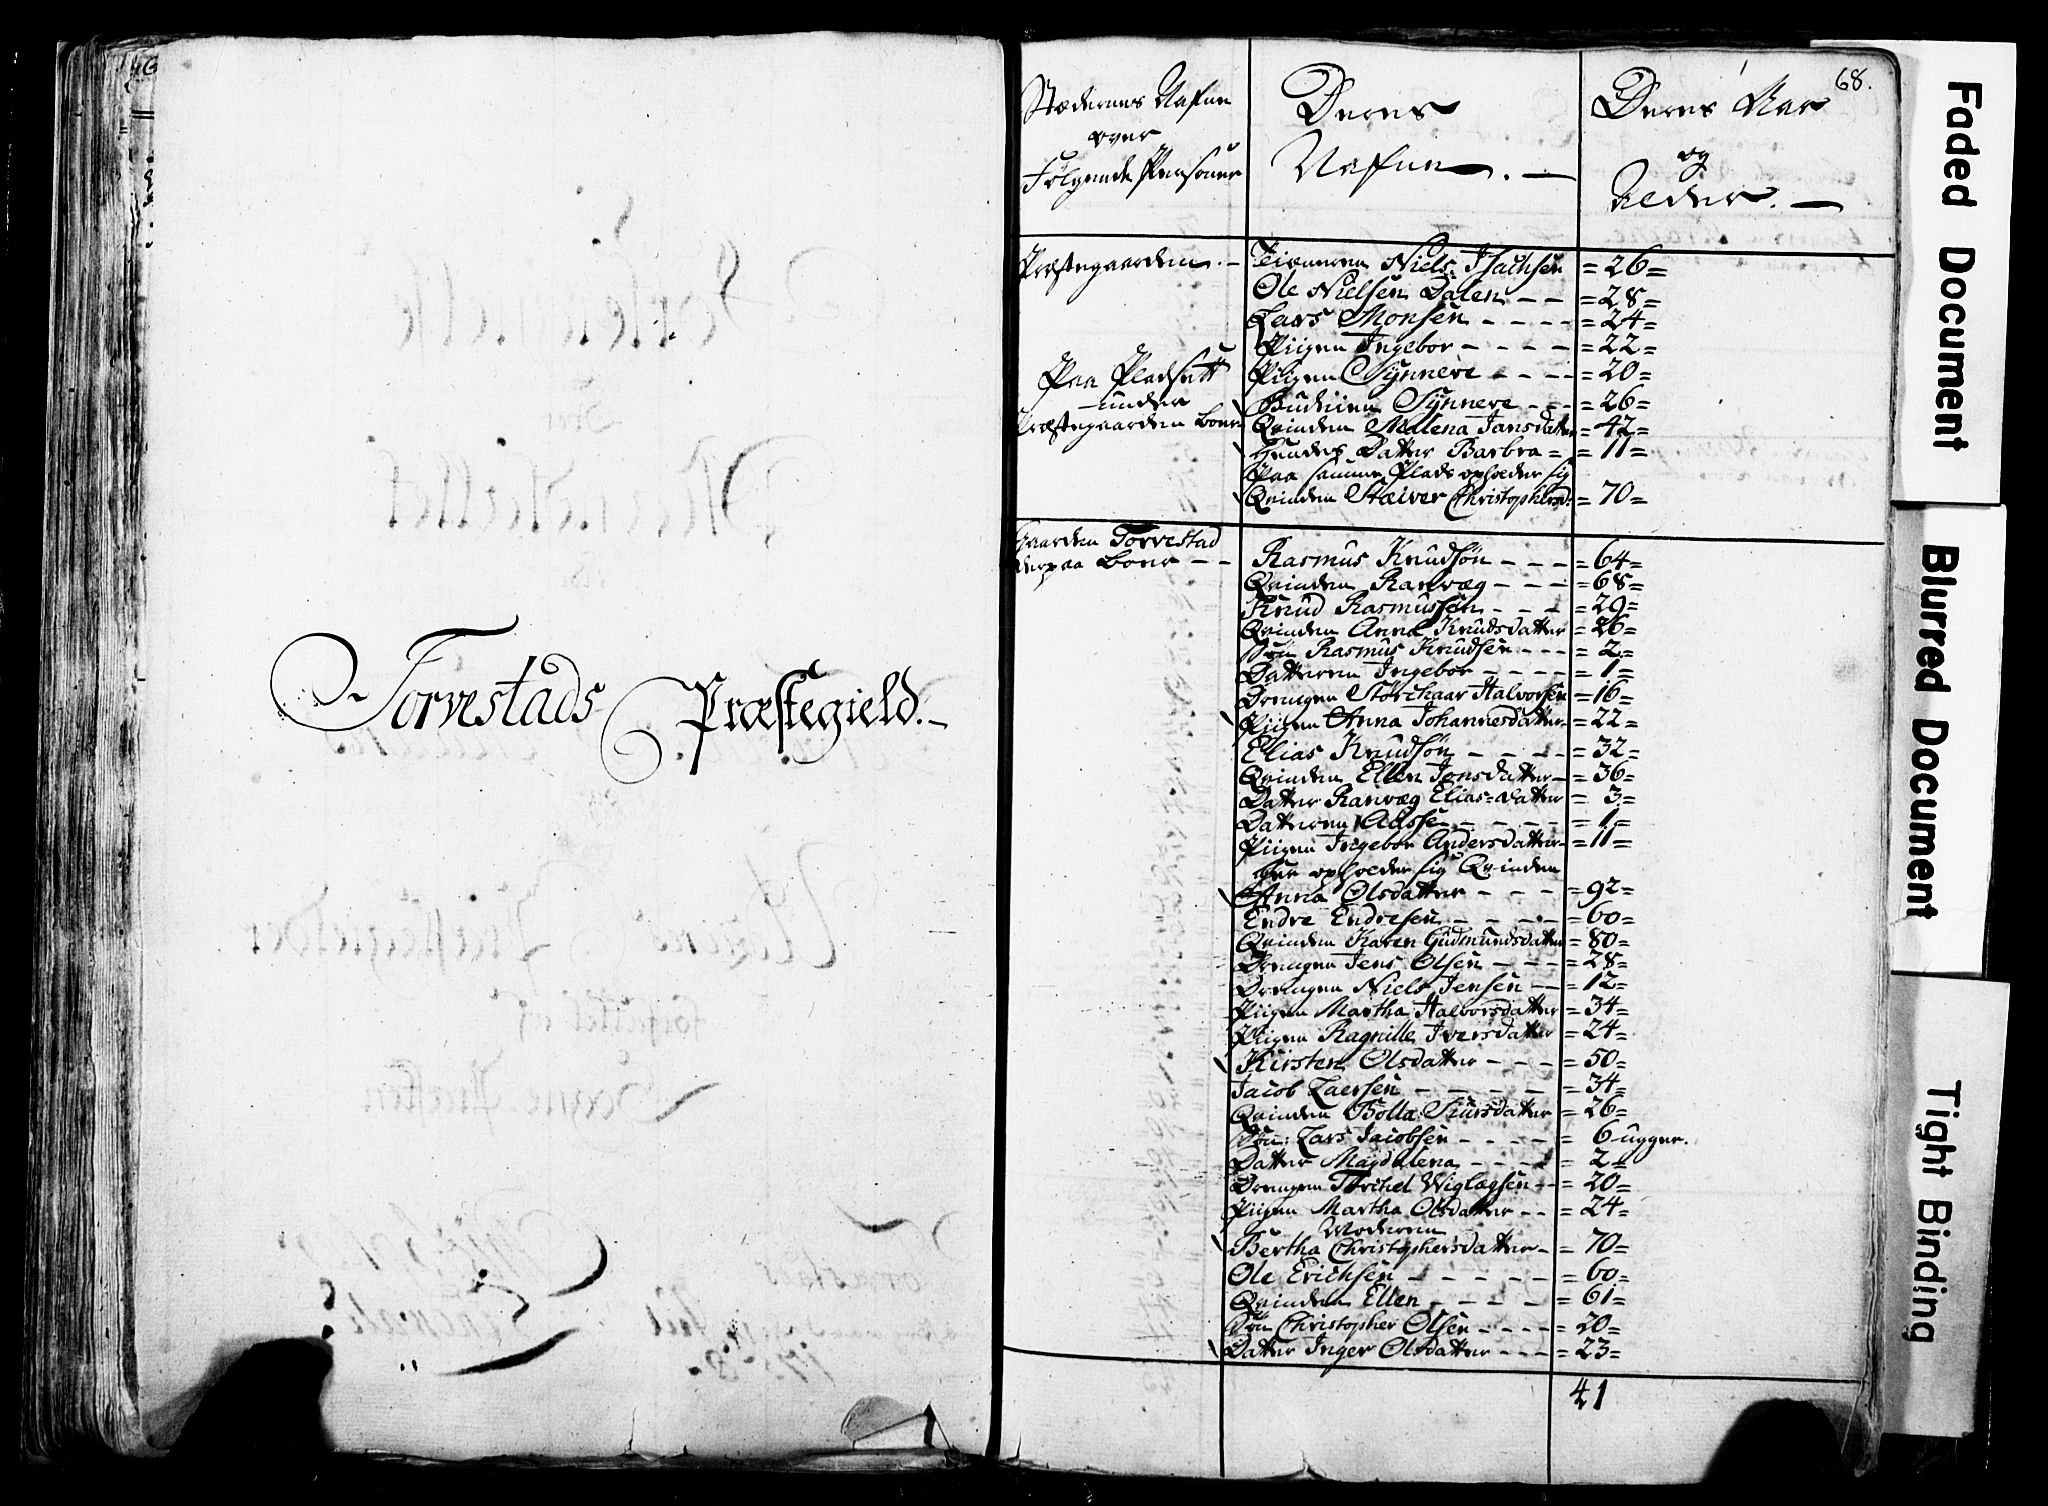 Torvestads Præstegield.
68.
Stædernes Nafne
over
Følgende Personer
Deres
Nafne.
Deres Aar
og
Alder.
Præstegaarden. Tieneren Niels Isachsen = 26 =
Ole Nielsen Dalen = 28 =
Lars Monsen = 24 =
Piigen Ingebor = 22 =
Paa Pladset Piigen Synneve = 20 =
under Budeien Synneve = 26 =
Præstegaarden boer Qvinden Malena Jansdatter = 42 =
Hendes Datter Barbra = 11 =
Paa samme Plads opholder sig
Qvinden Steiver Christophersd: = 70 =
Gaarden Torvestad
herpaa boer Rasmus Knudsøn = 64 =
Qvinden Ranvæg = 68 =
Knud Rasmussen = 29 =
Qvinden Anna Knudsdatter = 26 =
Søn Rasmus Knudsen = 2 =
Datteren Ingebor = 1 =
Drengen Størchaar Halvorsen = 16 =
Piigen Anna Johannesdatter = 22 =
Elias Knudsøn = 32 =
Qvinden Ellen Jonsdatter = 36 =
Datter Ranvæg Elias=datter = 3 =
Datteren Aasse = 1 =
Piigen Ingebor Andersdatter = 11 =
her opholder sig Qvinden
Anna Olsdatter = 92 =
Endre Endresen = 60 =
Qvinden Karen Gudmundsdatter = 80 =
Drengen Jens Olsen = 28 =
Drengen Niels Jensen = 12 =
Piigen Martha Halvorsdatter = 34 =
Piigen Ragnille Iversdatter = 24 =
Kirsten Olsdatter = 50 =
Jacob Laersen = 34 =
Qvinden Bolla Siursdatter = 26 =
Søn: Lars Jacobsen = 6 ugger.
Datter Magdalena = 2 =
Drengen Torchel Wiglægsen = 20 =
Piigen Martha Olsdatter = 24 =
Moderen
Bertha Christophersdatter = 70 =
Ole Erichsen = 60 =
Qvinden Ellen = 61 =
Søn Christopher Olsen = 20 =
Datter Inger Olsdatter = 23 =
41
Faded Document
Blurred Document
Tight Binding